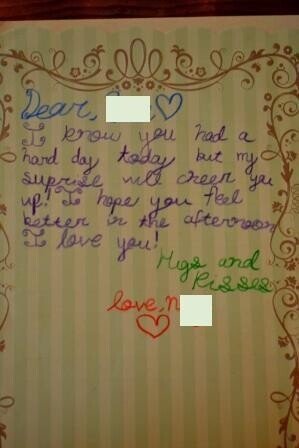 Dear, ♡
I know you had a
hard day today but my
suprise will cheer you
up! I hope you feel
better in the afternoon
I love you!
Hugs and
Kisses
love, N